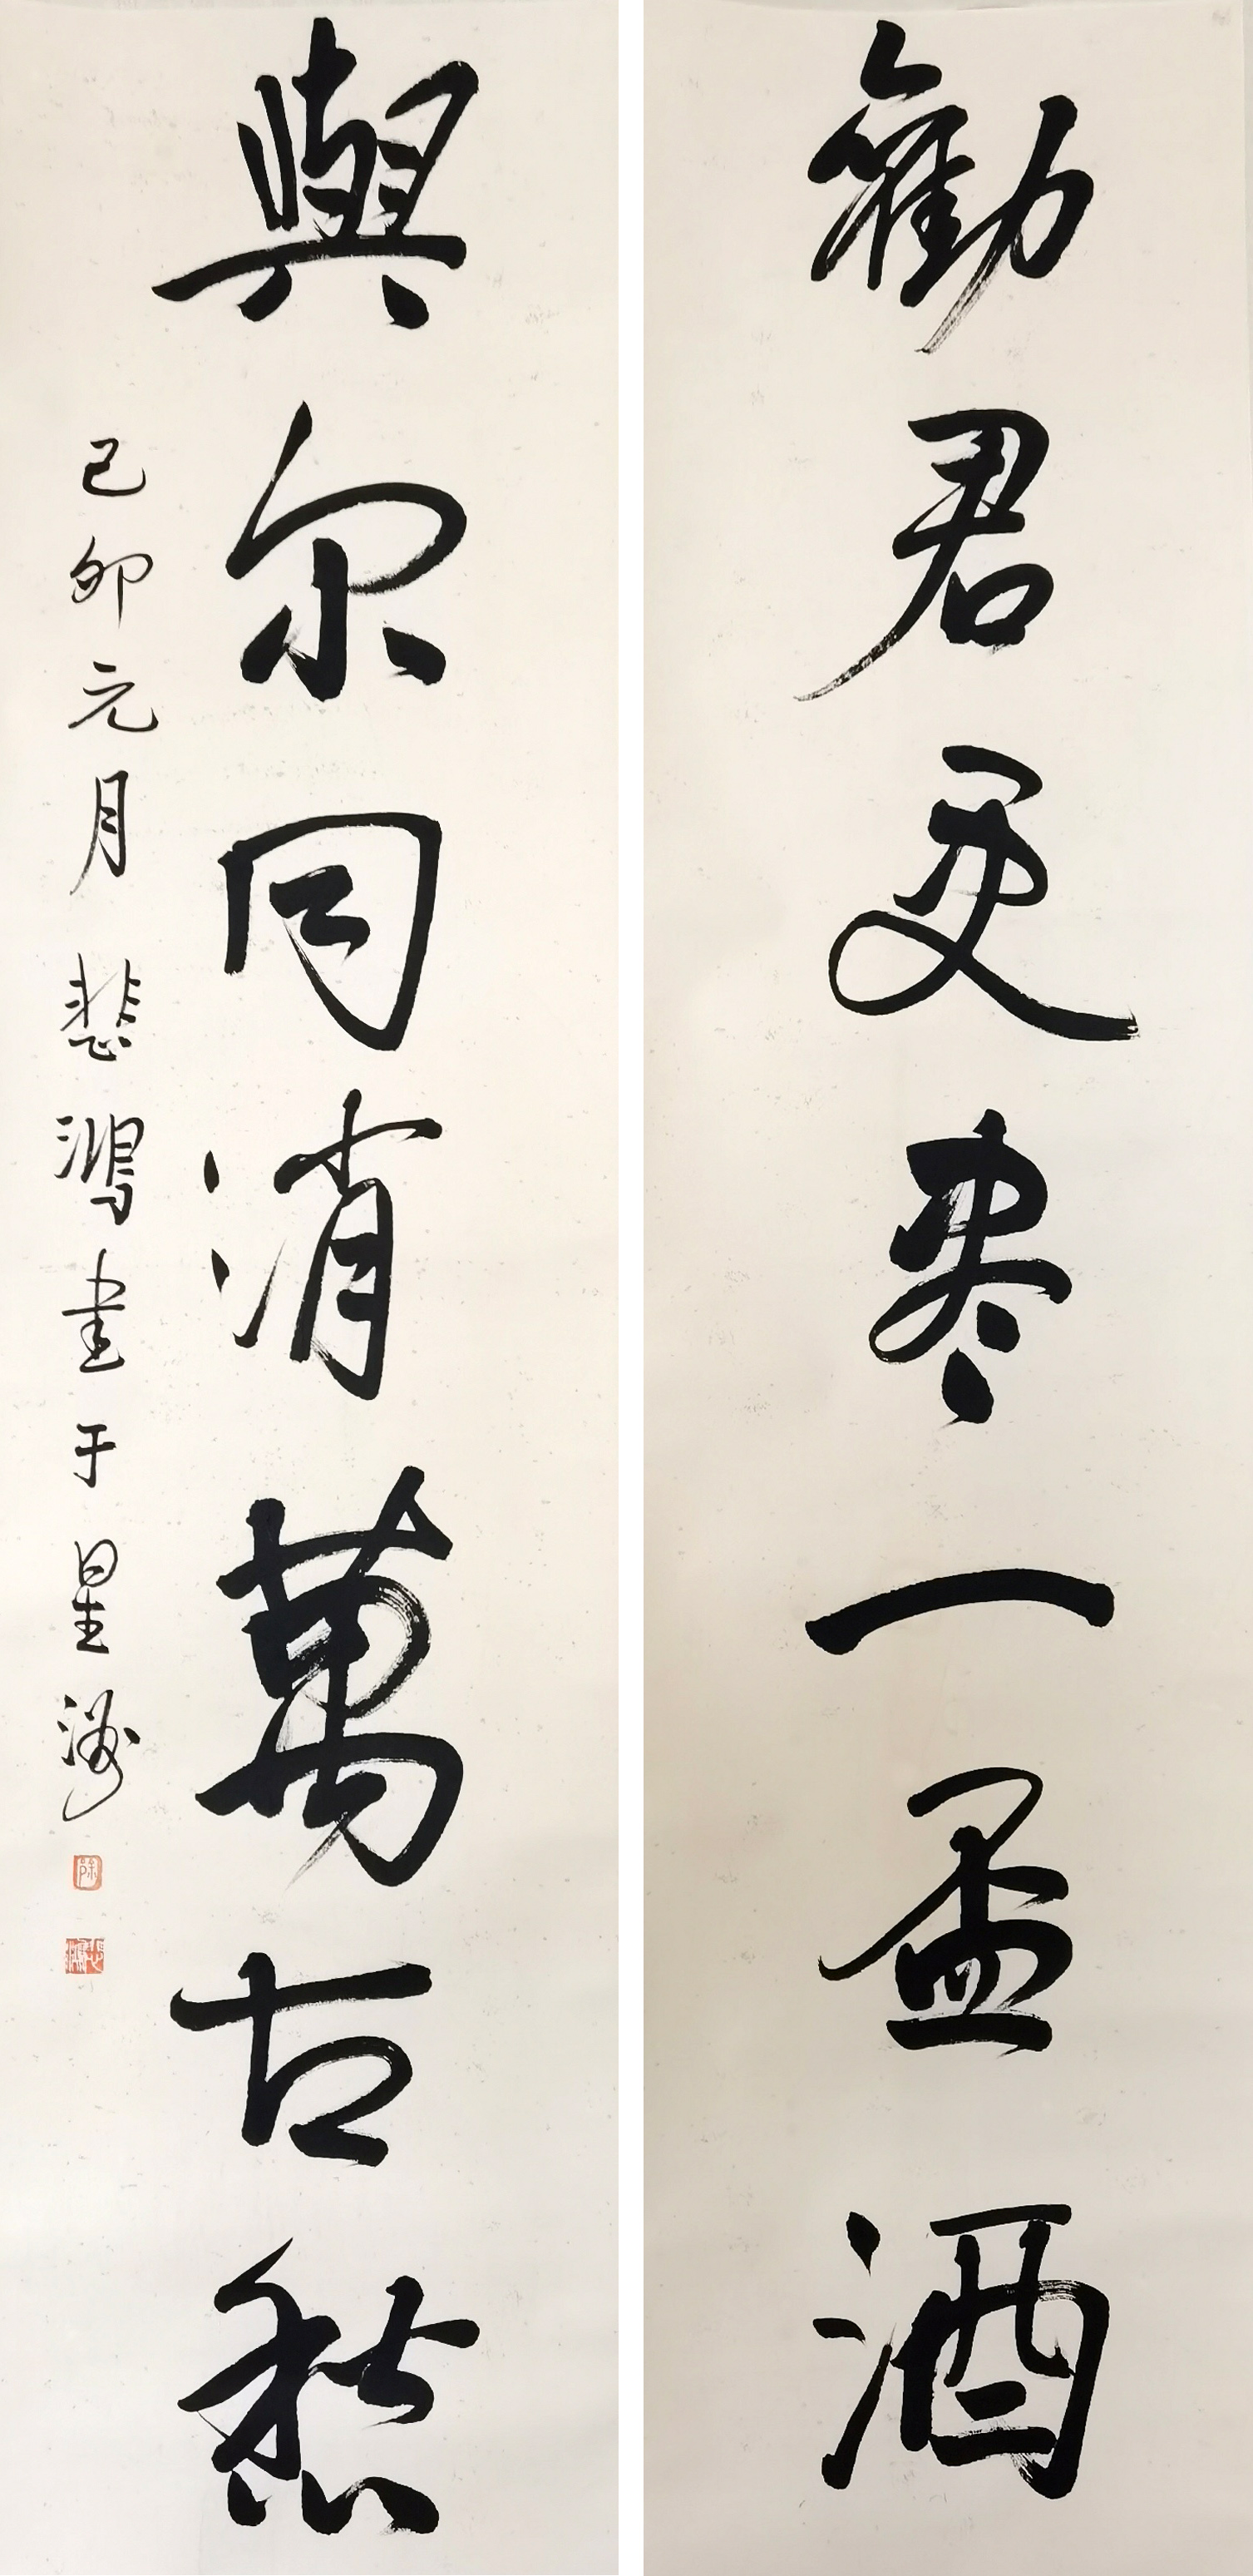 勸君更尽一盃酒
與尔同消萬古愁
己卯元月悲鴻書于星洲
悲鴻